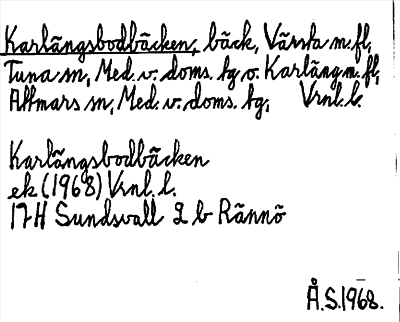 Karlängsbodbäcken, bäck, Värsta m.fl,
Tuna sn, Med. v. doms. tg o. Karläng m. fl,
Attmars sn, Med. v. doms. tg, Vrnl. l.
Karlängsbodbäcken
ek (1968) Vrnl. l.
17H Sundsvall 2 b Rännö
Å.S. 1968.